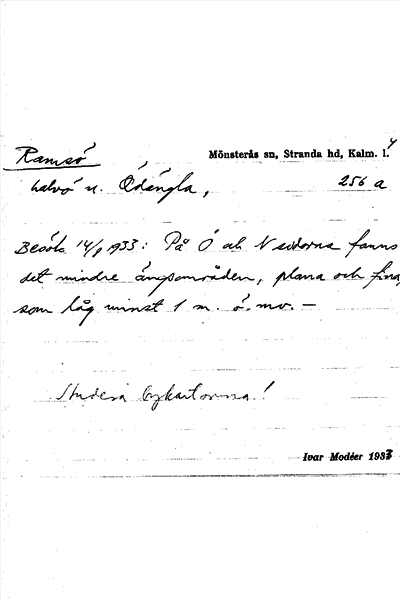 Ramsö
Mönsterås sn, Stranda hd, Kalm. l.
halvö n. Ödängla,
256 a
Besök 14/9 1933: På Ö och N sidorna fanns
det mindre ängsområden, plana och fina,
som låg minst 1 m. ö. mv. —
Studera bykartorna!
Ivar Modéer 1933